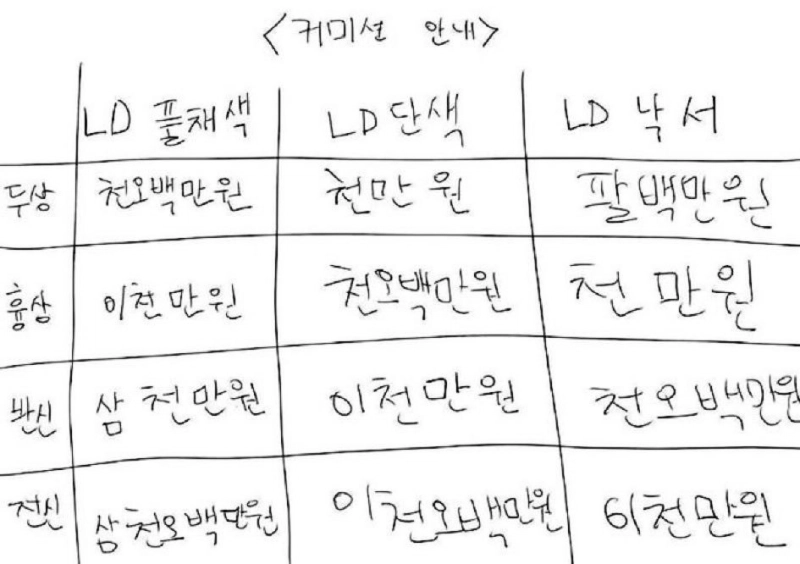 <커미션 안내>
LD 풀채색 LD 단색 LD 낙서
두상 천오백만원 천만 원 팔백만원
흉상 이천만원 천오백만원 천만원
반신 삼천만원 이천만원 천오백만원
전신 삼천오백만원 이천오백만원 이천만원